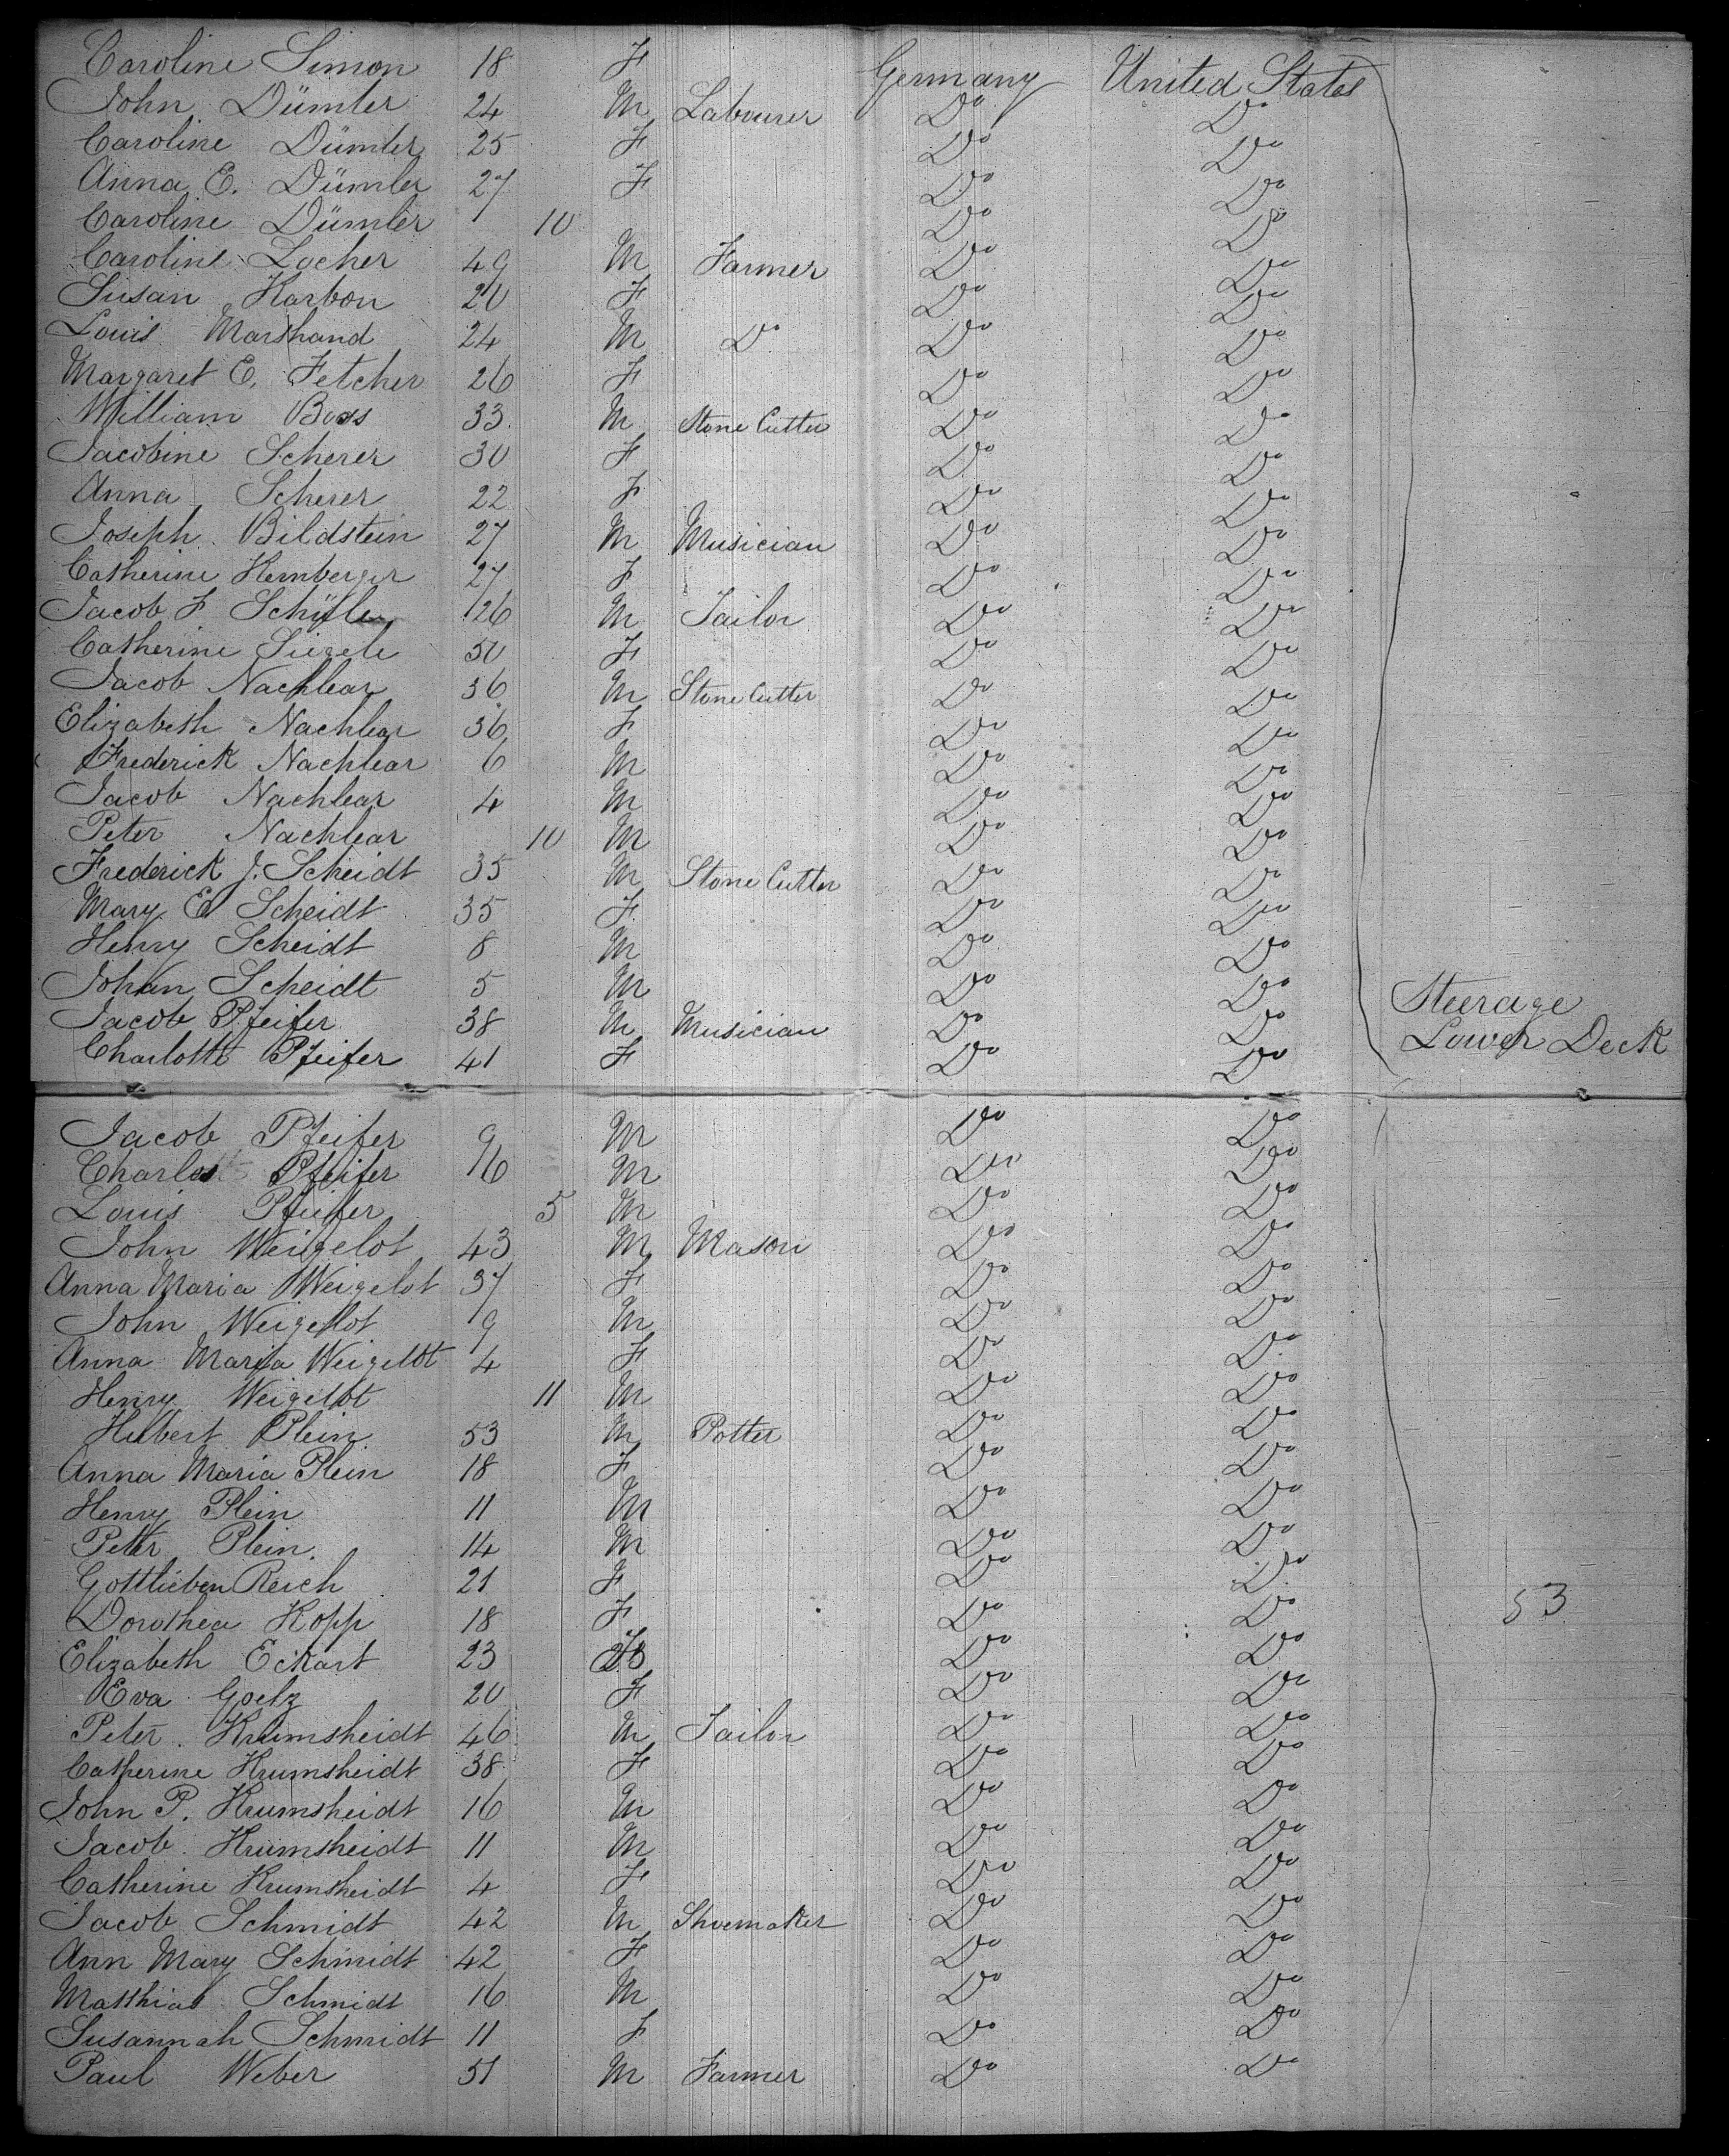 Caroline Simon 18 F Germany United States
John Dümler 24 M Labourer Do Do
Caroline Dümler 25 F Do Do
Anna E. Dümler 27 F Do Do
Caroline Dümler 10 Do Do
Caroline Locher 49 M Farmer Do Do
Susan Karbon 20 F Do Do
Louis Marshand 24 M D Do Do
Margaret E. Fetcher 26 F Do Do
William Boss 33 M Stone Cutter Do Do
Jacobine Scherer 30 F Do Do
Anna Scherer 22 F Do Do
Joseph Bildstein 27 M Musician Do Do
Catherine Hemberger 27 F Do Do
Jacob F 26 M Tailor Do Do
Catherine Siegele 50 F Do Do
Jacob Nachlear 36 M Stone Cutter Do Do
Elizabeth Nachlear 36 F Do Do
Frederick Nachlear 6 M Do Do
Jacob Nachlear 4 M Do Do
Peter Nachlear 10 M Do Do
Frederick J. Scheidt 35 M Stone Cutter Do Do
Mary E Scheidt 35 F Do Do
Henry Scheidt 8 M Do Do
Johan Scheidt 5 M Do Do Steerage
Jacob Pfeifer 38 M Musician Do Do Lower Deck
Charlotte Pfeifer 41 F Do Do
Jacob Pfeifer 9 M Do Do
Charles Pfeifer 6 M Do Do
Louis Pfeifer 5 M Do Do
John Weigelot 43 M Mason Do Do
Anna Maria Weigelot 37 F Do Do
John Weigelot 9 M Do Do
Anna Maria Weigelot 4 F Do Do
Henry Weigelot 11 M Do Do
Hubert Plein 53 M Potter Do Do
Anna Maria Plein 18 F Do Do
Henry Plein 11 M Do Do
Peter Plein 14 M Do Do
Gottlieben Reich 21 F Do Do
Dorothea Kopp 18 F Do Do 53
Elizabeth Eckart 23 F Do Do
Eva Goelz 20 F Do Do
Peter Krumsheidt 46 M Tailor Do Do
Catherine Krumsheidt 38 F Do Do
John P. Krumsheidt 16 M Do Do
Jacob Krumsheidt 11 M Do Do
Catherine Krumsheidt 4 F Do Do
Jacob Schmidt 42 M Shoemaker Do Do
Ann Mary Schmidt 42 F Do Do
Matthias Schmidt 16 M Do Do
Susannah Schmidt 11 F Do Do
Paul Weber 51 M Farmer Do Do